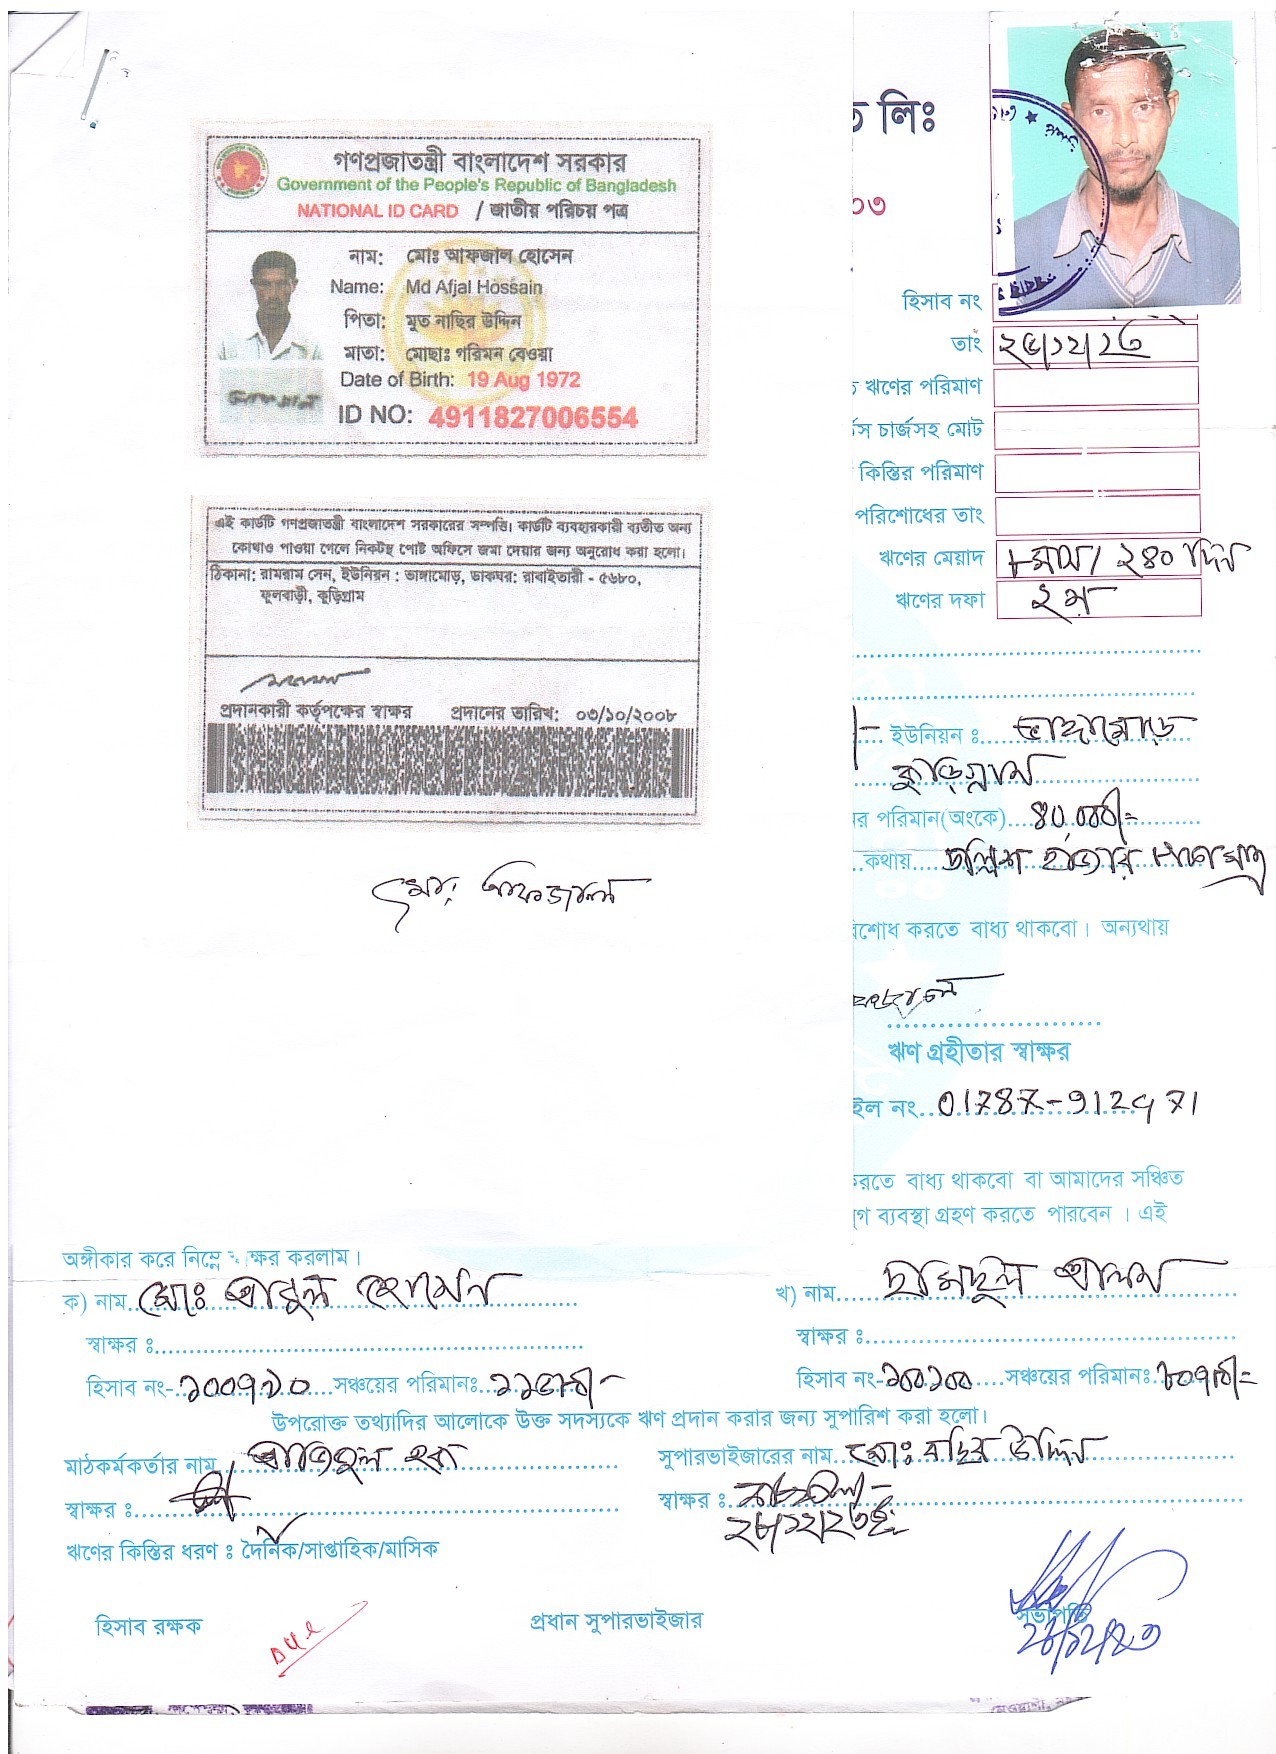 গণপ্রজাতন্ত্রী বাংলাদেশ সরকার
Government of the People's Republic of Bangladesh
NATIONAL ID CARD / জাতীয় পরিচয় পত্র
নাম: মোঃ আফজাল হোসেন
Name: Md Afjal Hossain
পিতা: মৃত নাছির উদ্দিন
মাতা: মোছাঃ গরিমন বেওয়া
Date of Birth: 19 Aug 1972
ID NO: 4911827006554
এই কার্ডটি গণপ্রজাতন্ত্রী বাংলাদেশ সরকারের সম্পত্তি। কার্ডটি ব্যবহারকারী ব্যতীত অন্য
কোথাও পাওয়া গেলে নিকটস্থ পোষ্ট অফিসে জমা দেয়ার জন্য অনুরোধ করা হলো।
ঠিকানা: রামরাম সেন, ইউনিয়ন : ভাঙ্গামোড়, ডাকঘর: রাবাইতারী - ৫৬৮০,
ফুলবাড়ী, কুড়িগ্রাম
প্রদানকারী কর্তৃপক্ষের স্বাক্ষর প্রদানের তারিখ: ০৩/১০/২০০৮
মোঃ আফজাল
ত লিঃ
০৩
হিসাব নং
তাং
ঋণের পরিমাণ
র্স চার্জসহ মোট
কিস্তির পরিমাণ
পরিশোধের তাং
ঋণের মেয়াদ ৮মাস/ ২৪০ দিন
ঋণের দফা ২য়
ইউনিয়ন ঃ ভাঙ্গামোড়
কুড়িগ্রাম
র পরিমান(অংকে) ৪০,০০০/=
কথায় চল্লিশ হাজার টাকা মাত্র
রিশোধ করতে বাধ্য থাকবো। অন্যথায়
ঋণ গ্রহীতার স্বাক্ষর
ইল নং 01787-912971
করতে বাধ্য থাকবো বা আমাদের সঞ্চিত
ব্যবস্থা গ্রহণ করতে পারবেন। এই
অঙ্গীকার করে নিম্নে স্বাক্ষর করলাম।
ক) নাম মোঃ আবুল হোসেন
স্বাক্ষর ঃ
হিসাব নং- সঞ্চয়ের পরিমানঃ
খ) নাম হামিদুল আলম
স্বাক্ষর ঃ
হিসাব নং- ১০০১০০ সঞ্চয়ের পরিমানঃ
উপরোক্ত তথ্যাদির আলোকে উক্ত সদস্যকে ঋণ প্রদান করার জন্য সুপারিশ করা হলো।
মাঠকর্মকর্তার নাম হক
সুপারভাইজারের নাম মোঃ উদ্দিন
স্বাক্ষর ঃ
স্বাক্ষর ঃ
ঋণের কিস্তির ধরণ ঃ দৈনিক/সাপ্তাহিক/মাসিক
হিসাব রক্ষক প্রধান সুপারভাইজার সভাপতি